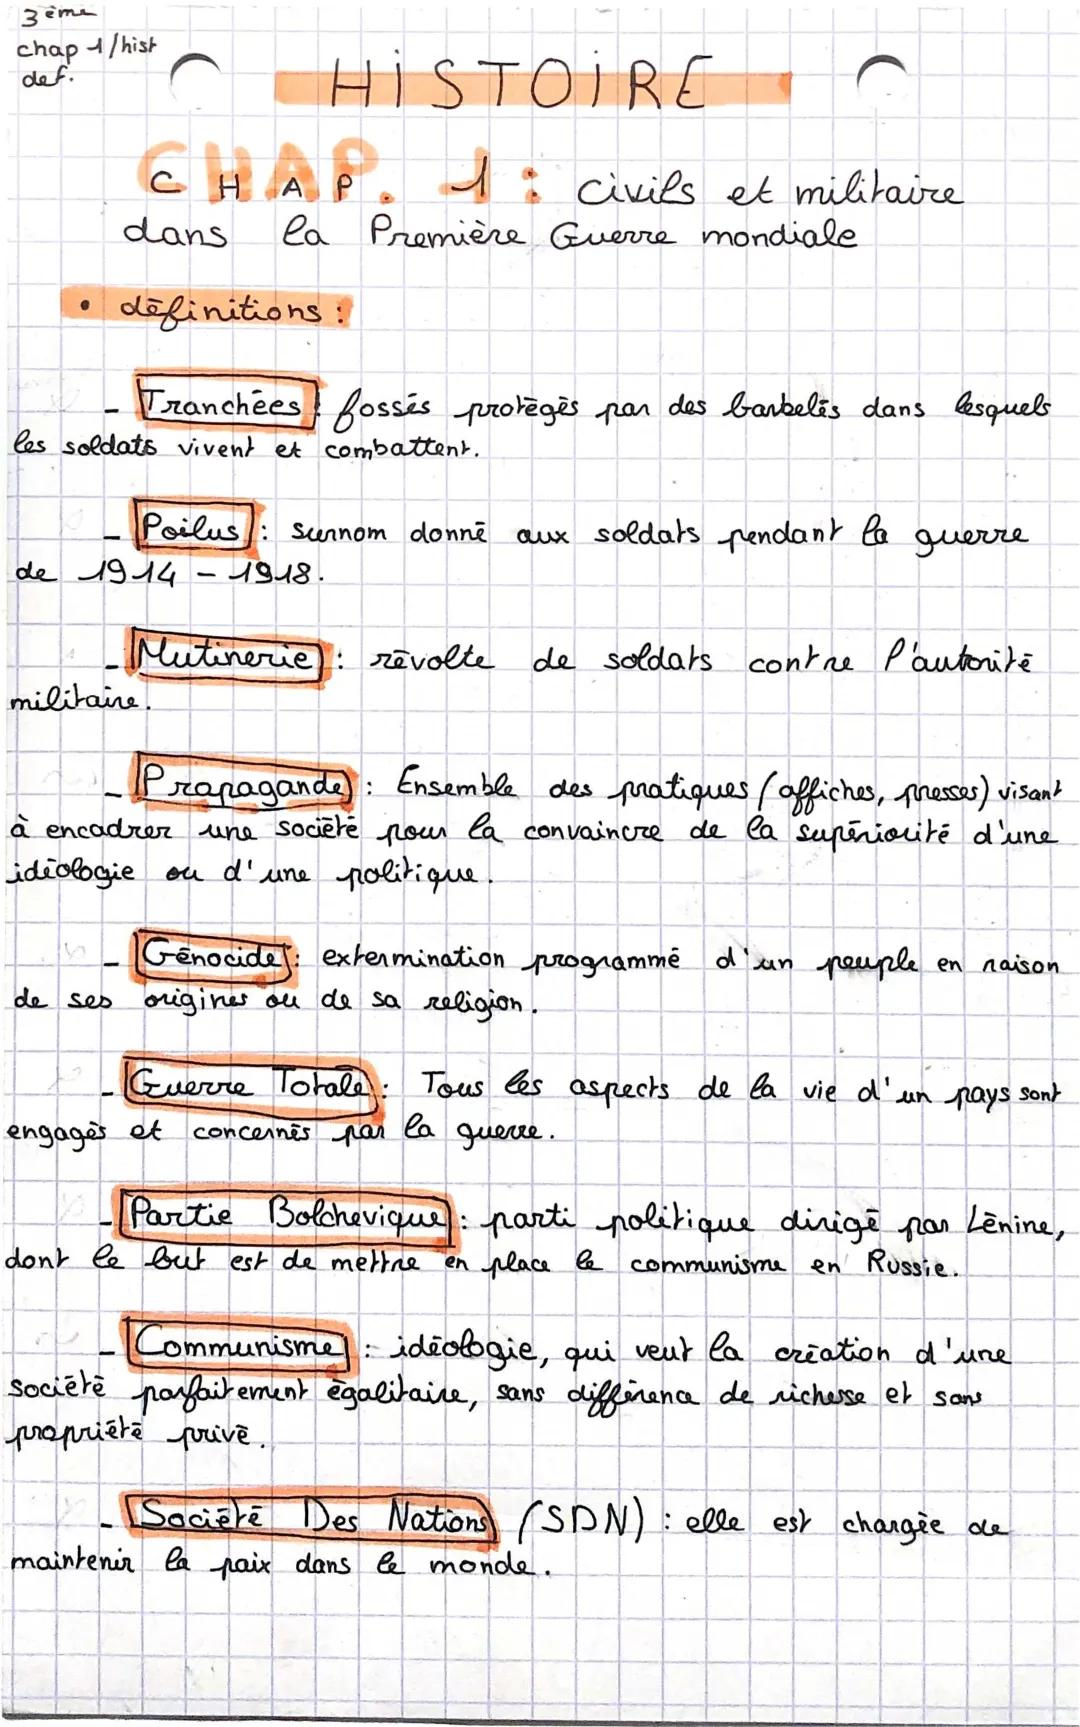 3ème
chap 1/hist
def.
HISTOIRE
CHAP. 1 : civils et militaire
dans la Première Guerre mondiale
• définitions :
- Tranchées : fossés protégés par des barbelés dans lesquels
les soldats vivent et combattent.
- Poilus : surnom donné aux soldats pendant la guerre
de 1914 - 1918.
- Mutinerie : révolte de soldats contre l'autorité
militaire.
- Propagande : Ensemble des pratiques (affiches, presses) visant
à encadrer une société pour la convaincre de la supériorité d'une
idéologie ou d'une politique.
- Génocide : extermination programmé d'un peuple en raison
de ses origines ou de sa religion.
- Guerre Totale : Tous les aspects de la vie d'un pays sont
engagés et concernés par la guerre.
- Partie Bolchevique : parti politique dirigé par Lénine,
dont le but est de mettre en place le communisme en Russie.
- Communisme : idéologie, qui veut la création d'une
société parfaitement égalitaire, sans différence de richesse et sans
propriété privé.
- Société Des Nations (SDN) : elle est chargée de
maintenir la paix dans le monde.